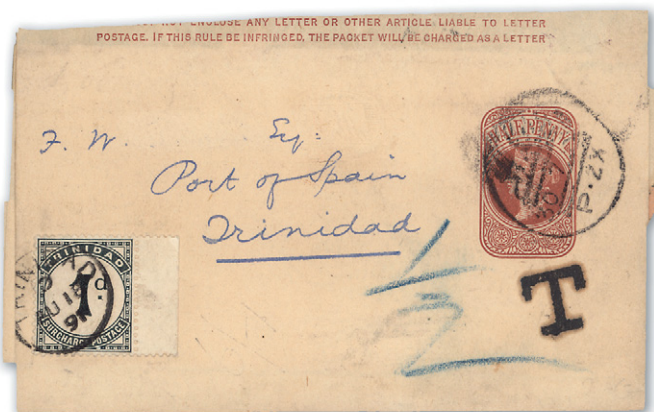 NOT ENCLOSE ANY LETTER OR OTHER ARTICLE LIABLE TO LETTER
POSTAGE. IF THIS RULE BE INFRINGED, THE PACKET WILL BE CHARGED AS A LETTER
HALFPENNY
F. W. Esq:
Port of Spain
Trinidad
1/2
T
TRINIDAD
1d.
SURCHARGE POSTAGE